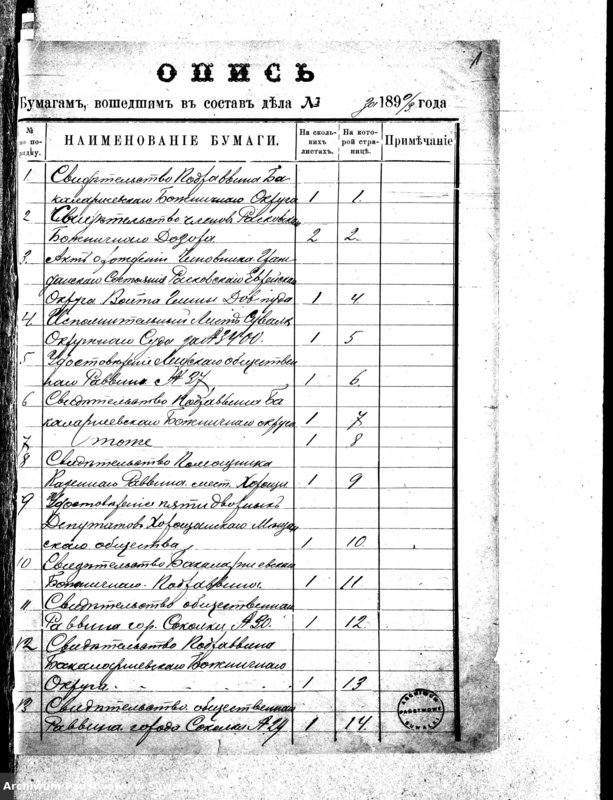 1
ОПИСЬ
Бумагамъ, вошедшимъ въ составъ дѣла №
за 1890/3 года
№ по порядку.
НАИМЕНОВАНІЕ БУМАГИ.
На сколькихъ листахъ.
На которой страницѣ.
Примѣчаніе
1 Свидѣтельство Подраввина Ба-
каларжевскаго Божничнаго Округа 1 1.
2 Свидѣтельство членовъ Рачковскаго
Божничнаго Дозора 2 2.
3. Актъ о рожденіи Чиновника Граж-
данскаго Состоянія Рачковскаго Еврейскаго
Округа Войта Гмины 1 4
4 Исполнительный Листъ Сувалк.
Окружнаго Суда за № 3400. 1 5
5 Удостовѣреніе общественнаго
Раввина № 27 1 6.
6 Свидѣтельство Подраввина Ба-
каларжевскаго Божничнаго округа 1 7
7 тоже 1 8
8 Свидѣтельство Помощника
Казеннаго Раввина мест. Хорощи 1 9
9 Удостовѣреніе пяти дворныхъ
Депутатовъ Хорощанскаго Мѣщан-
скаго общества 1 10.
10 Свидѣтельство Бакаларжевскаго
Божничнаго Подраввина 1 11
11 Свидѣтельство общественнаго
Раввина гор. Соколки № 30. 1 12.
12 Свидѣтельство Подраввина
Бакаларжевскаго Божничнаго
Округа 1 13
13 Свидѣтельство общественнаго
Раввина города Соколки № 29 1 14.
ARCHIWUM PAŃSTWOWE SUWAŁKI
Archiwum Państwowe w Suw